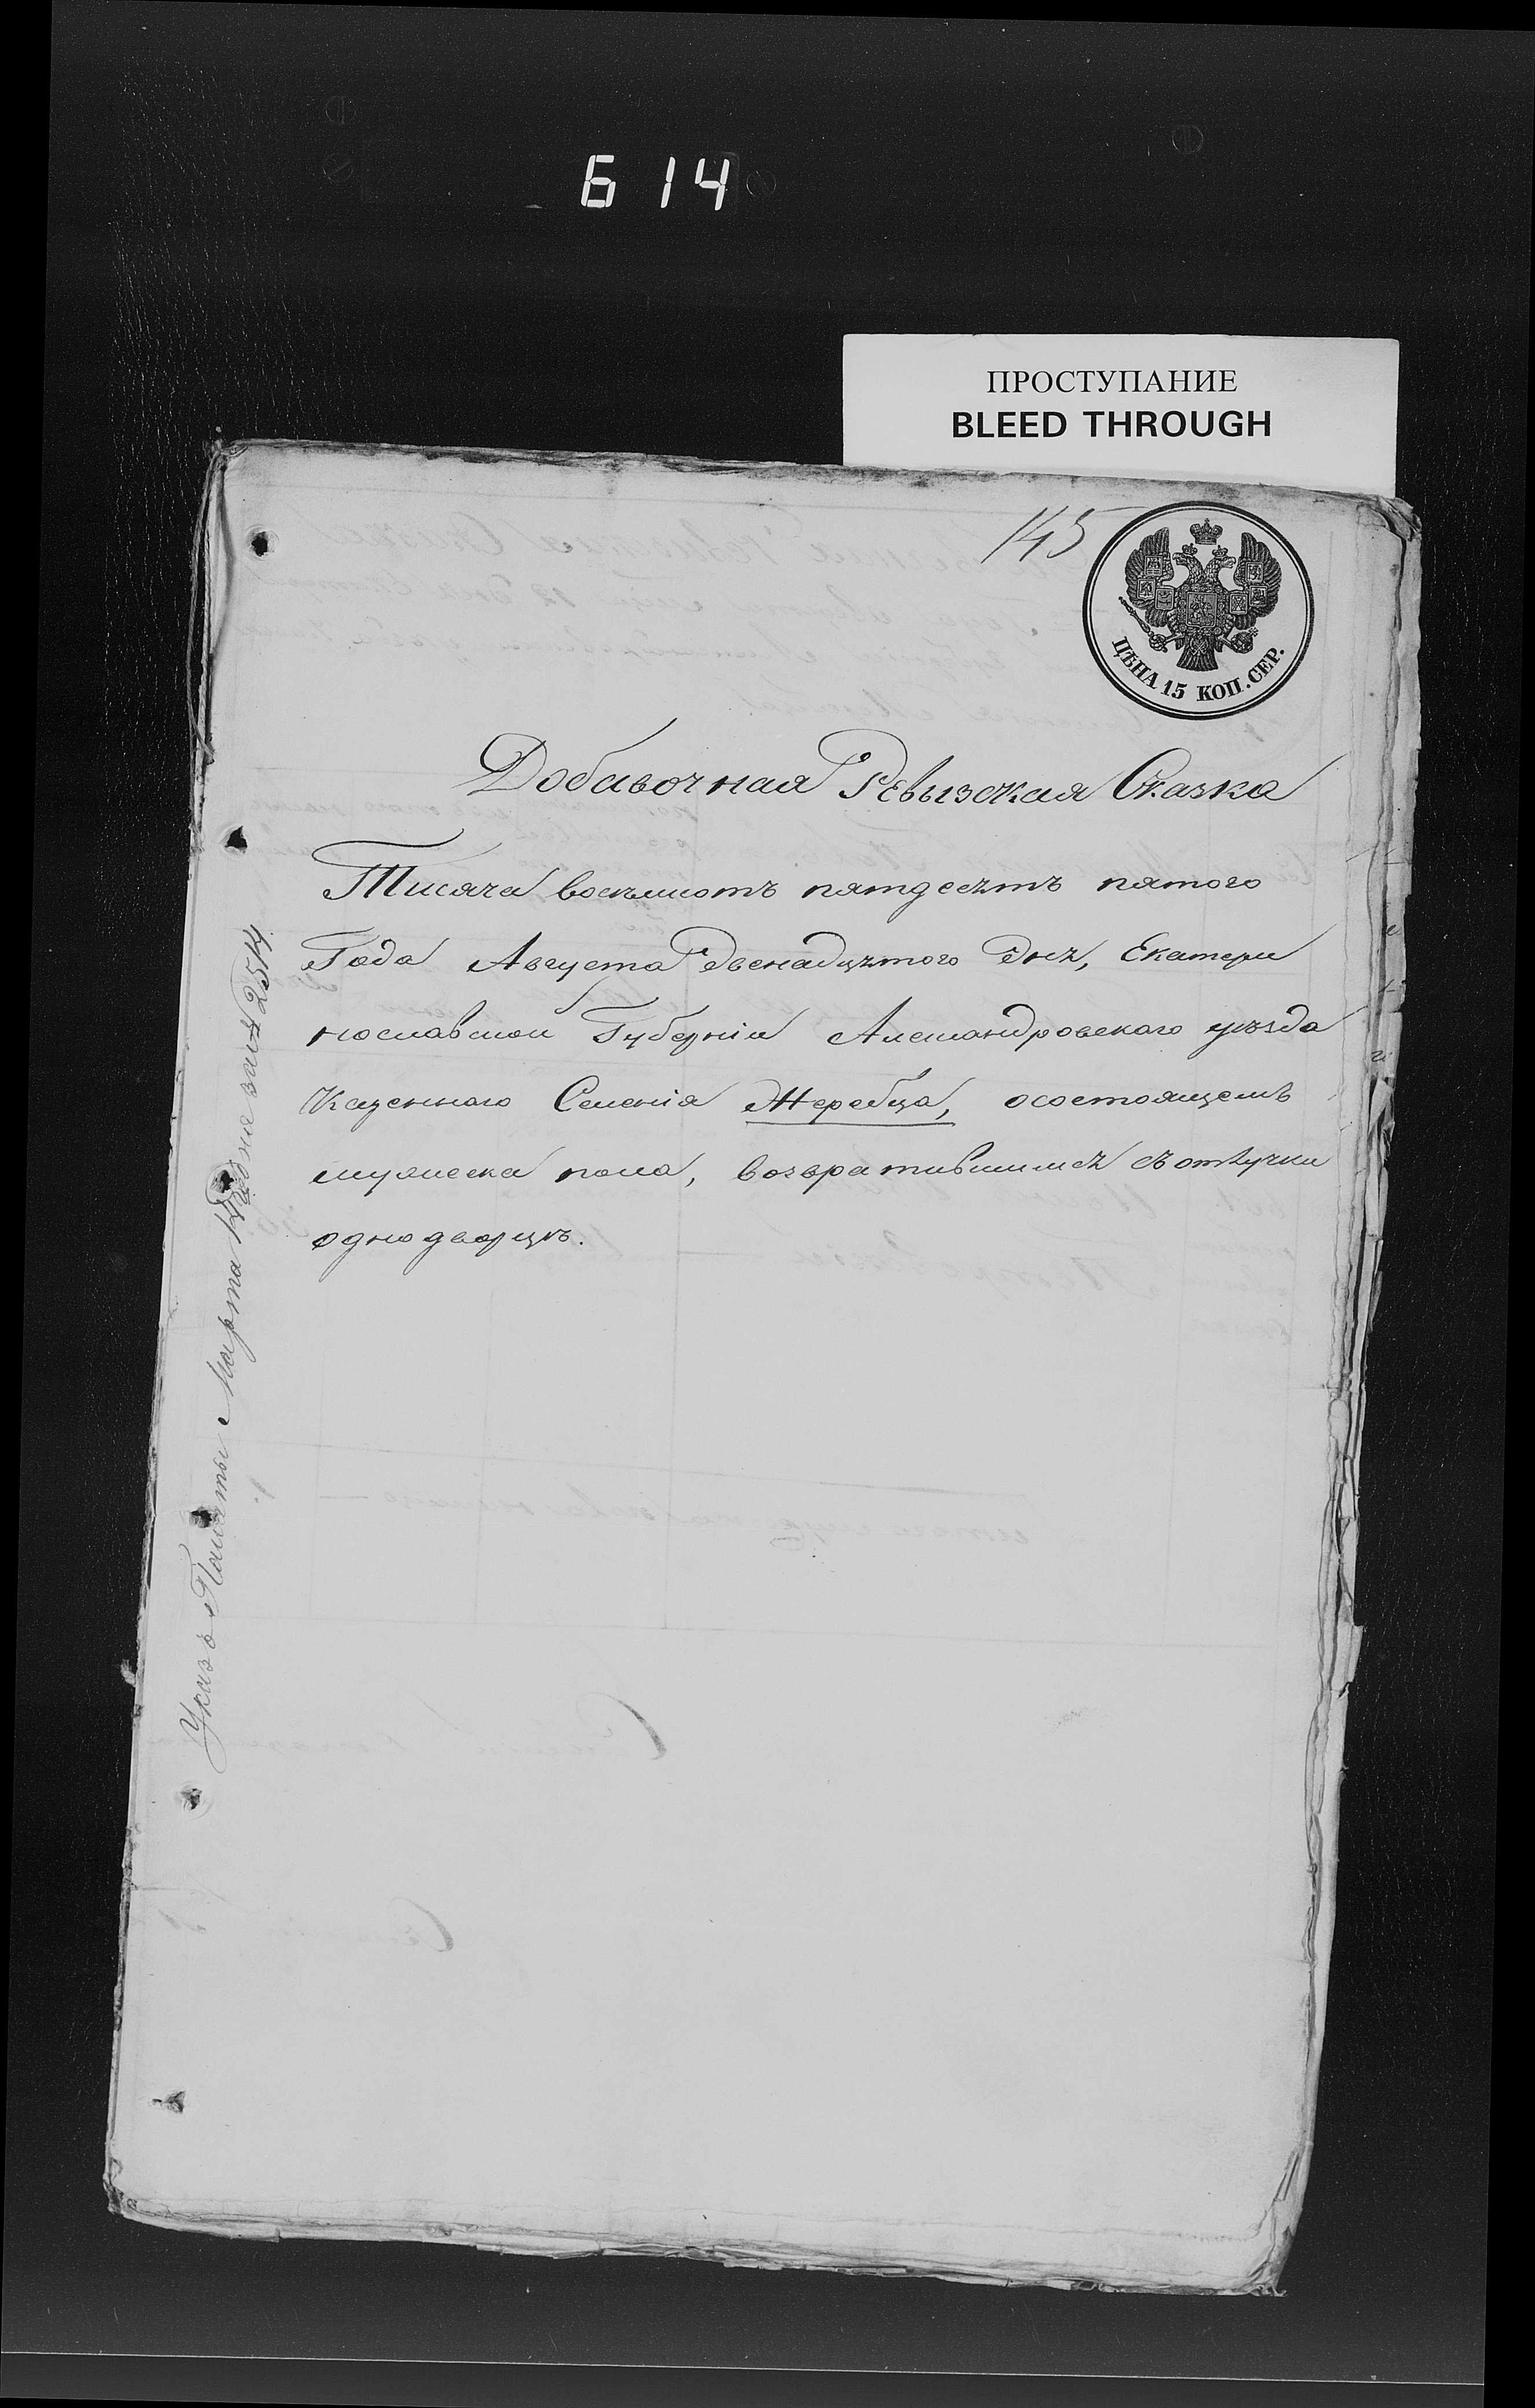 614
ПРОСТУПАНИЕ
BLEED THROUGH
145
ЦѢНА 15 КОП. СЕР.
Добавочная Ревызская Сказка
Тисяча восьмсотъ пятдесятъ пятого
Года Августа двенадцятого дня, Екатери
нославской Губерніи Александровского уѣзда
Казенного Селенія Жеребца, осостоящемъ
мужеска пола, возвратившимся съ отлучки
однодворцѣ.
Указъ Палаты Марта 14 дня за № 2514